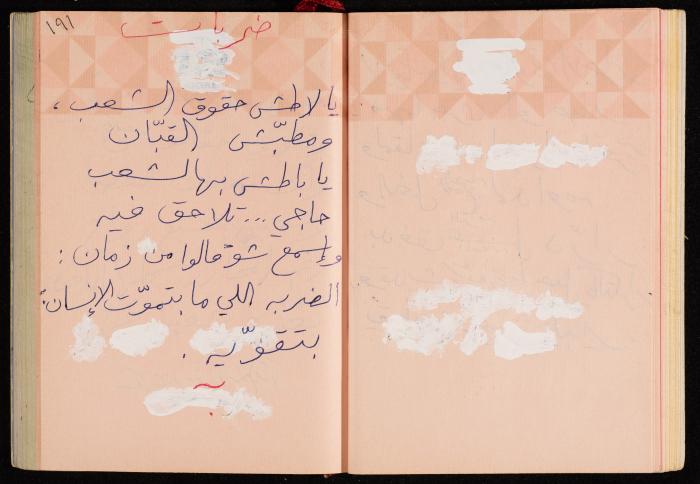 ١٩١
ضربات
يا لاطش حقوق الشعب،
ومطبّش القبّان
يا باطش بهالشعب
حاجي... تلاحق فيه
وإسمع شو قالوا من زمان:
الضربه اللي ما بتموّت الإنسان:
بتقوّيه.